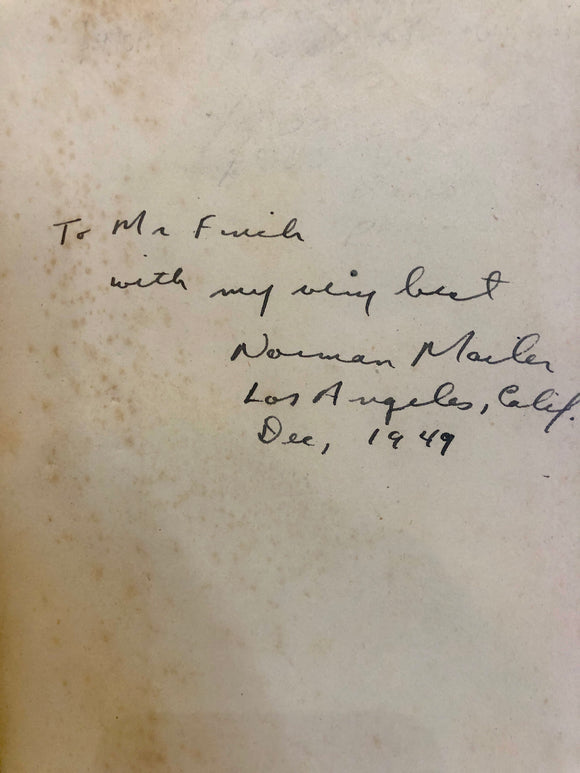 To Mr Finch
with my very best
Norman Mailer
Los Angeles, Calif.
Dec, 1949